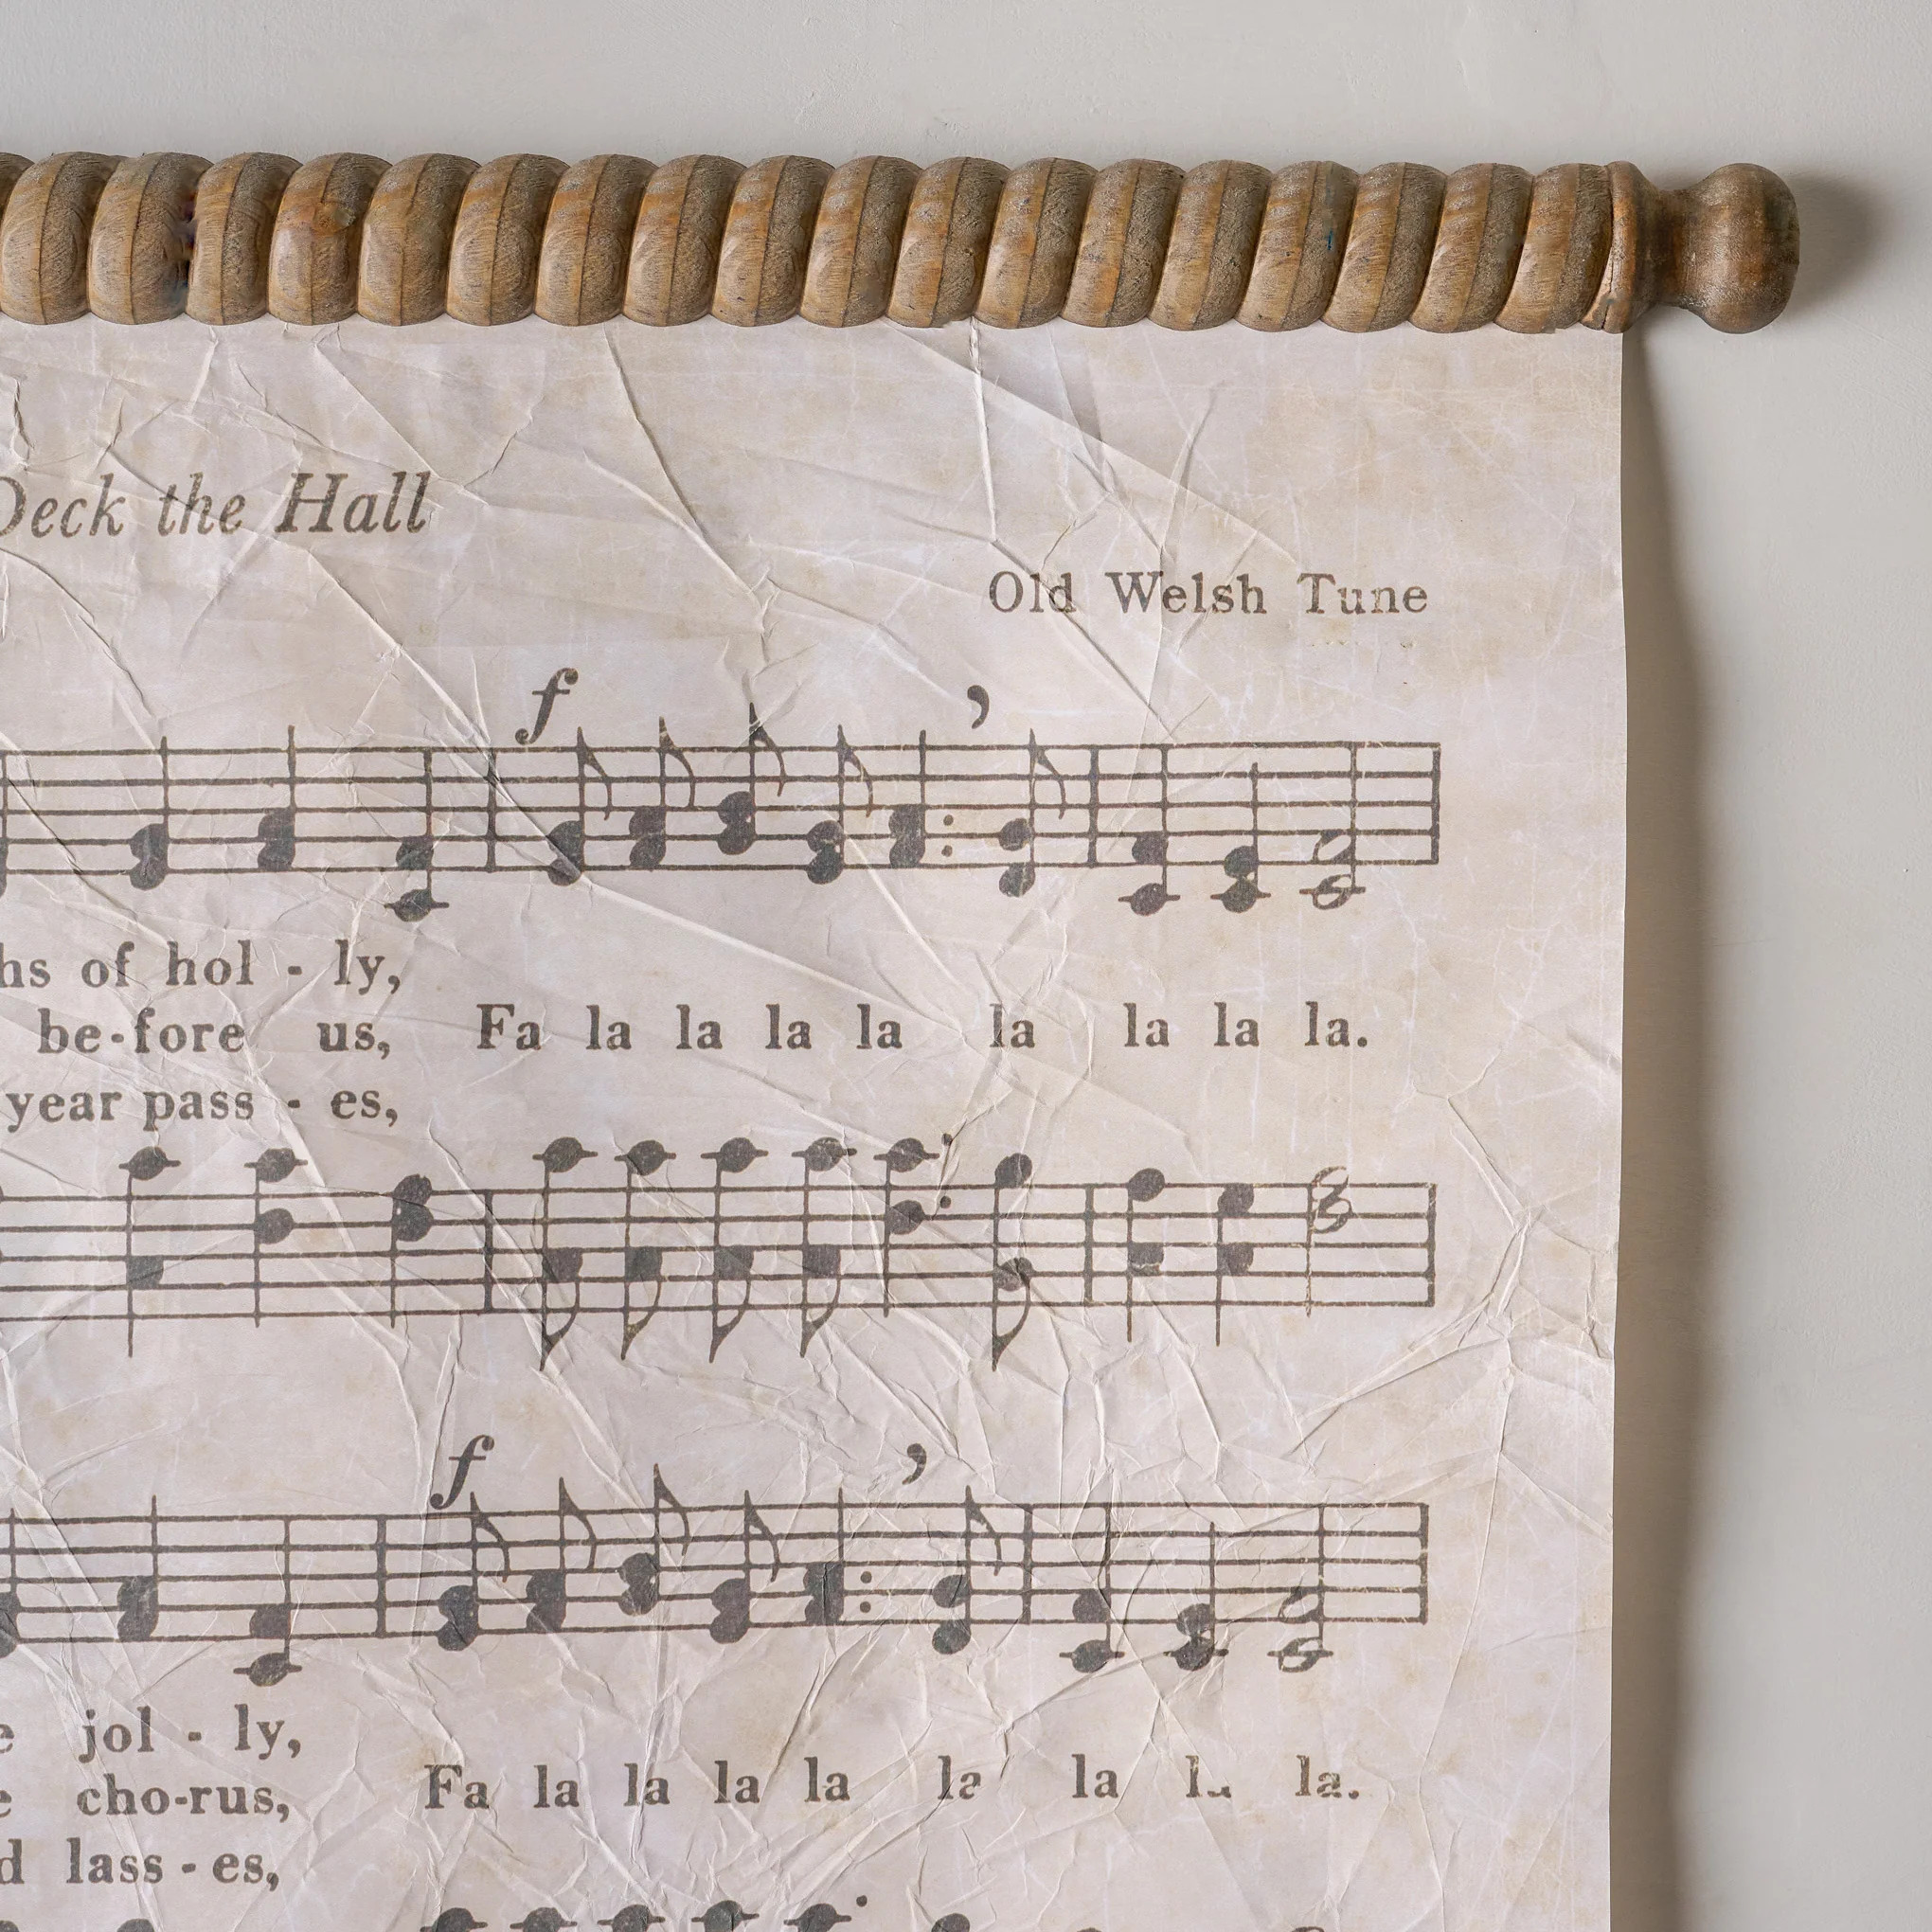 Deck the Hall
Old Welsh Tune
f
hs of hol - ly,
be-fore us, Fa la la la la la la la la.
year pass - es,
f
e jol - ly,
e cho-rus, Fa la la la la la la la.
d lass - es,